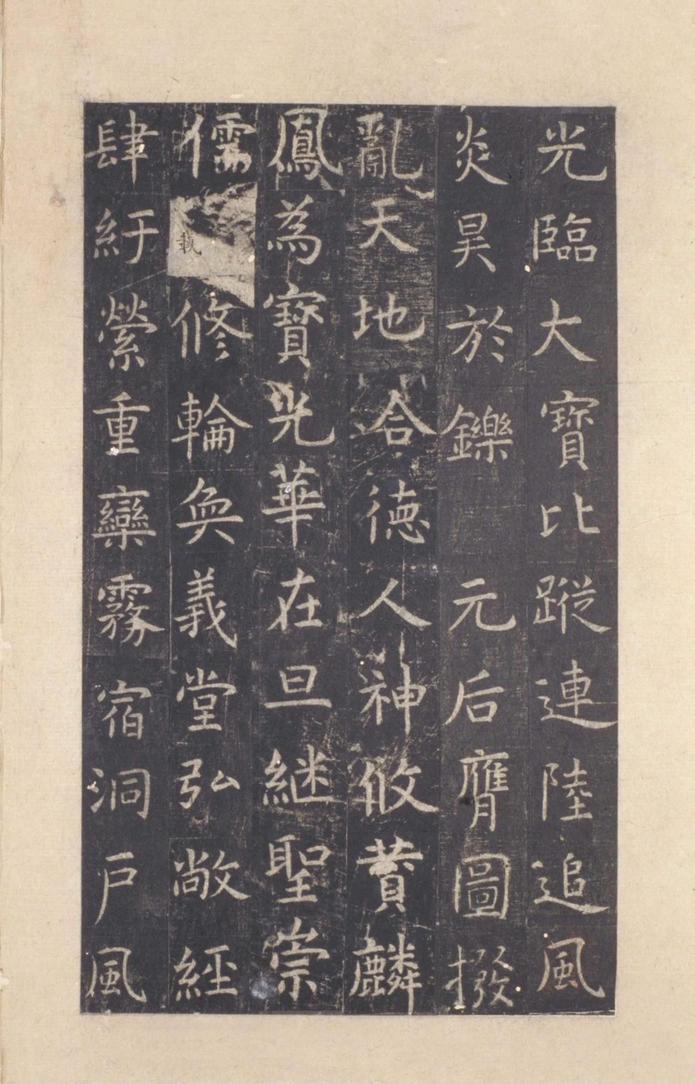 光臨大寶比蹤連陸追風
炎昊於鑠 元后膺圖撥
亂天地合徳人神攸賛麟
鳳為寶光華在旦継聖崇
儒載修輪奐義堂弘敞經
肆紆縈重欒霧宿洞戶風